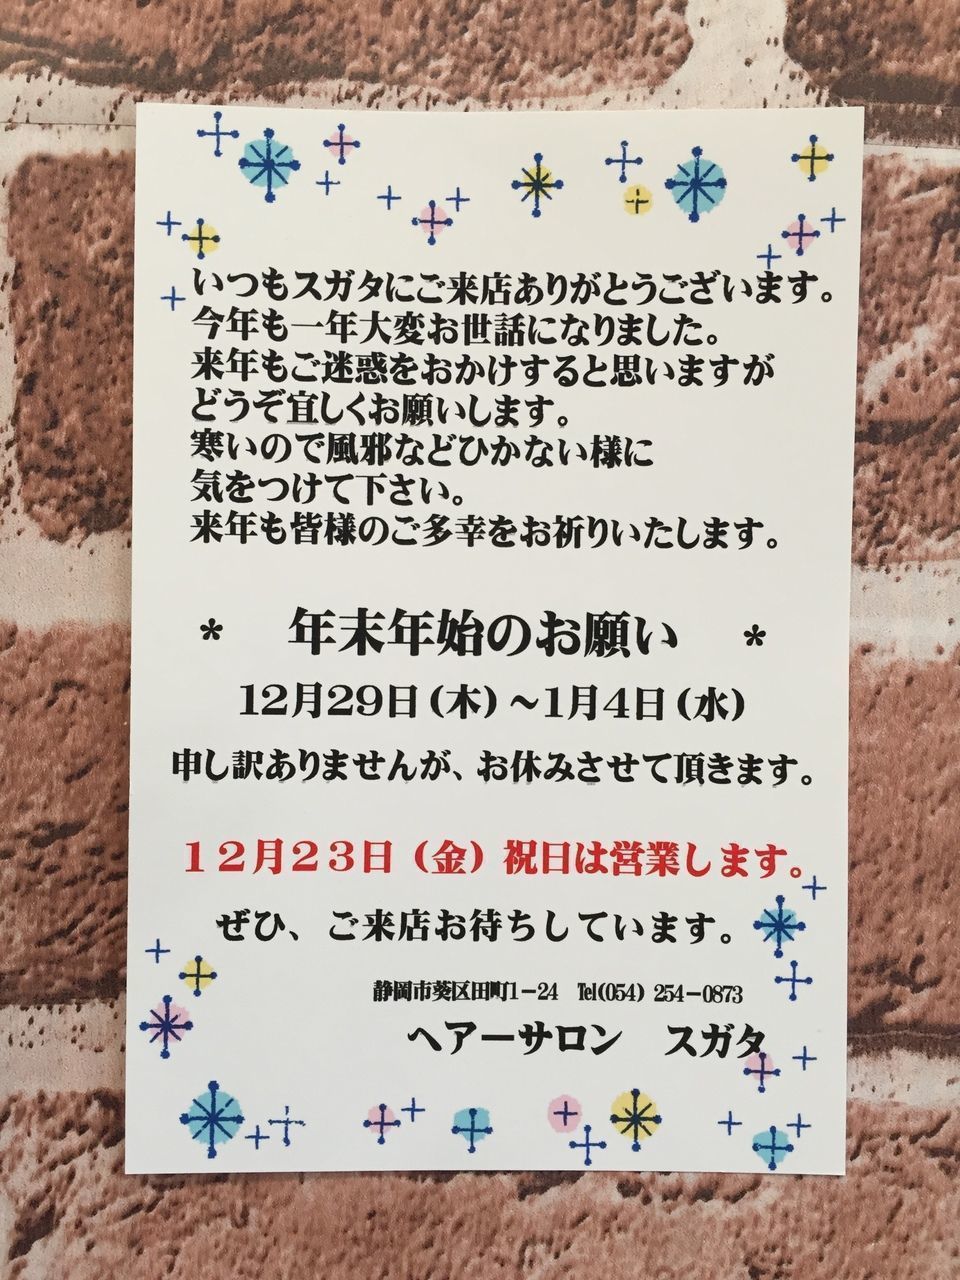 いつもスガタにご来店ありがとうございます。
今年も一年大変お世話になりました。
来年もご迷惑をおかけすると思いますが
どうぞ宜しくお願いします。
寒いので風邪などひかない様に
気をつけて下さい。
来年も皆様のご多幸をお祈りいたします。
* 年末年始のお願い *
12月29日(木)~1月4日(水)
申し訳ありませんが、お休みさせて頂きます。
12月23日(金)祝日は営業します。
ぜひ、ご来店お待ちしています。
静岡市葵区田町1-24 Tel(054)254-0873
ヘアーサロン スガタ